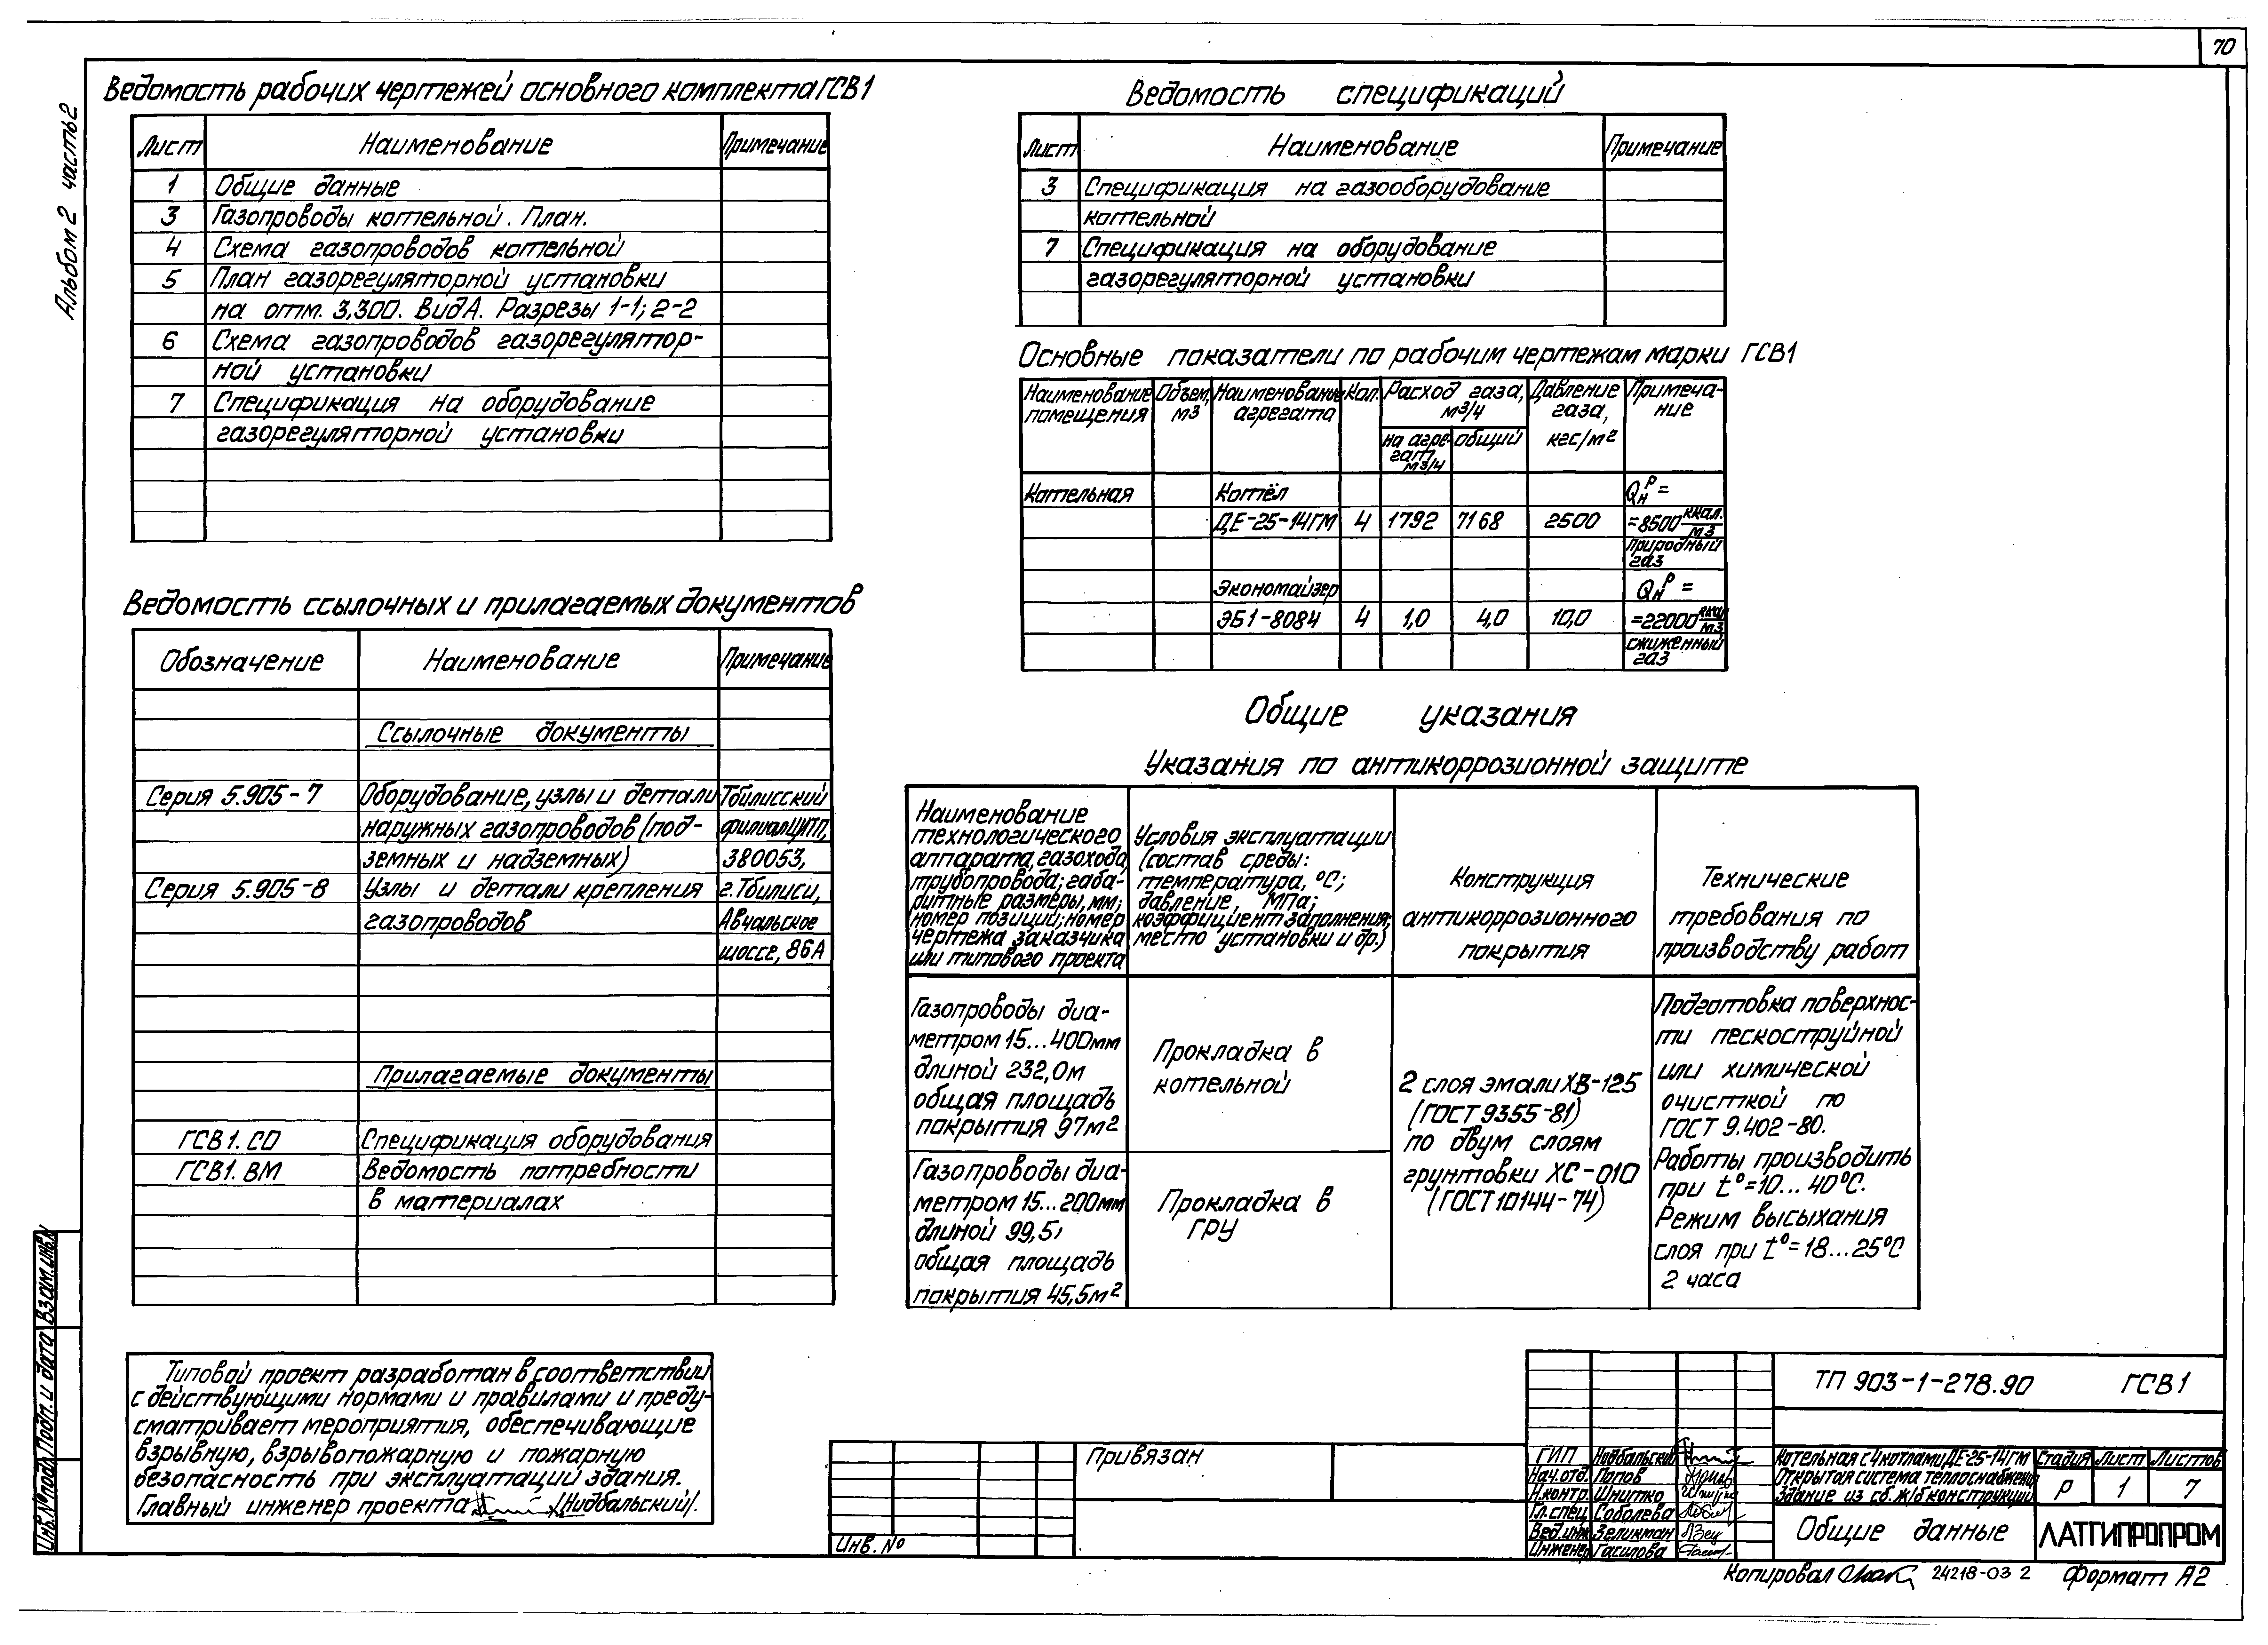 70
Альбом 2 часть 2
Ведомость рабочих чертежей основного комплекта ГСВ1
Лист Наименование Примечание
1 Общие данные
3 Газопроводы котельной. План.
4 Схема газопроводов котельной
5 План газорегуляторной установки
на отм. 3,300. Вид А. Разрезы 1-1; 2-2
6 Схема газопроводов газорегулятор-
ной установки
7 Спецификация на оборудование
газорегуляторной установки
Ведомость ссылочных и прилагаемых документов
Обозначение Наименование Примечание
Ссылочные документы
Серия 5.905-7 Оборудование, узлы и детали Тбилисский
наружных газопроводов (под- филиал ЦИТП,
земных и надземных) 380053,
Серия 5.905-8 Узлы и детали крепления г. Тбилиси,
газопроводов Авчальское
шоссе, 86А
Прилагаемые документы
ГСВ1. СО Спецификация оборудования
ГСВ1. ВМ Ведомость потребности
в материалах
Типовой проект разработан в соответствии
с действующими нормами и правилами и преду-
сматривает мероприятия, обеспечивающие
взрывную, взрывопожарную и пожарную
безопасность при эксплуатации здания.
Главный инженер проекта /Нидбальский/.
Ведомость спецификаций
Лист Наименование Примечание
3 Спецификация на газооборудование
котельной
7 Спецификация на оборудование
газорегуляторной установки
Основные показатели по рабочим чертежам марки ГСВ1
Наименование помещения
Объем, м3
Наименование агрегата
Кол.
Расход газа, м³/ч
на агре-
гат, м3/ч
общий
Давление газа, кгс/м²
Примеча-
ние
Котельная Котёл Qнᵖ =
ДЕ-25-14ГМ 4 1792 7168 2500 =8500 ккал./м3
природный газ
Экономайзер Qнᵖ =
ЭБ1-808И 4 1,0 4,0 10,0 =22000 ккал/м3
сжиженный газ
Общие указания
Указания по антикоррозионной защите
Наименование
технологического
аппарата, газохода,
трубопровода; габа-
ритные размеры, мм;
номер позиции; номер
чертежа заказчика
или типового проекта
Условия эксплуатации
(состав среды:
температура, °С;
давление, МПа;
коэффициент заполнения;
место установки и др.)
Конструкция
антикоррозионного
покрытия
Технические
требования по
производству работ
Газопроводы диа-
метром 15...400мм
длиной 232,0м
общая площадь
покрытия 97м²
Прокладка в
котельной
Газопроводы диа-
метром 15...200мм
длиной 99,5
общая площадь
покрытия 45,5м²
Прокладка в
ГРУ
2 слоя эмали ХВ-125
(ГОСТ 9355-81)
по двум слоям
грунтовки ХС-010
(ГОСТ 10144-74)
Подготовка поверхнос-
ти пескоструйной
или химической
очисткой по
ГОСТ 9.402-80.
Работы производить
при t°=10...40°С.
Режим высыхания
слоя при t°=18...25°С
2 часа
Инв.№подл. Подп. и дата Взам.инв.№
Привязан
Инв. №
ТП 903-1-278.90 ГСВ1
ГИП Нидбальский
Нач.отд. Попов
Н.контр. Шнитко
Гл.спец. Соболева
Вед.инж. Зеликман
Инженер Гасилова
Котельная с 4 котлами ДЕ-25-14ГМ
Открытая система теплоснабжения
Здание из сб. ж/б конструкций
Стадия Лист Листов
Р 1 7
Общие данные
ЛАТГИПРОПРОМ
Копировал 24218-03 2 Формат А2